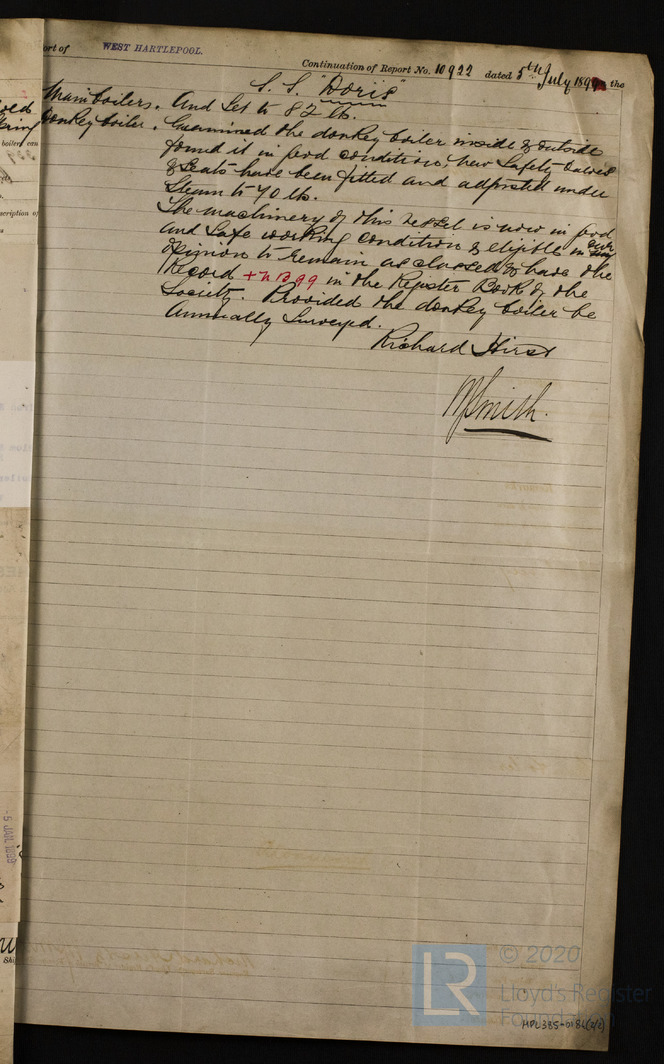 ort of WEST HARTLEPOOL.
Continuation of Report No. 10922 dated 5th July 1899 the
S. S. "Doris"
Main boilers. And Set to 82 lb.
Donkey boiler. Examined the donkey boiler inside & outside
found it in good condition, new Safety valves
& Seats have been fitted and adjusted under
Steam to 70 lb.
The machinery of this vessel is now in good
and Safe working condition & eligible in our
opinion to remain as classed & have the
Record + N B 99 in the Register Book of the
Society. Provided the donkey boiler be
Annually Surveyed.
Richard Hirst
Smith.
scription of
© 2020
LR
Lloyd's Register
Foundation
HPL385-0186(2/2)